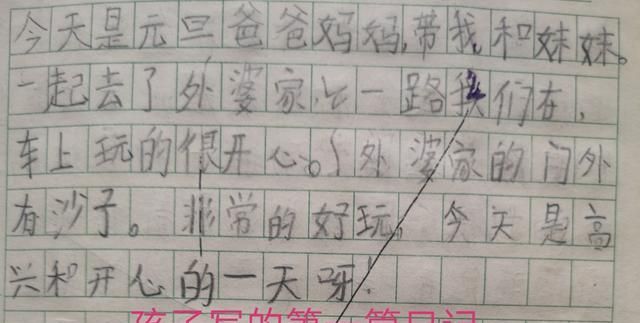 今天是元旦爸爸妈妈,带我和妹妹。
一起去了外婆家。一路我们在,
车上玩的很开心。外婆家的门外
有沙子。非常的好玩,今天是高
兴和开心的一天呀!
孩子写的第一篇日记